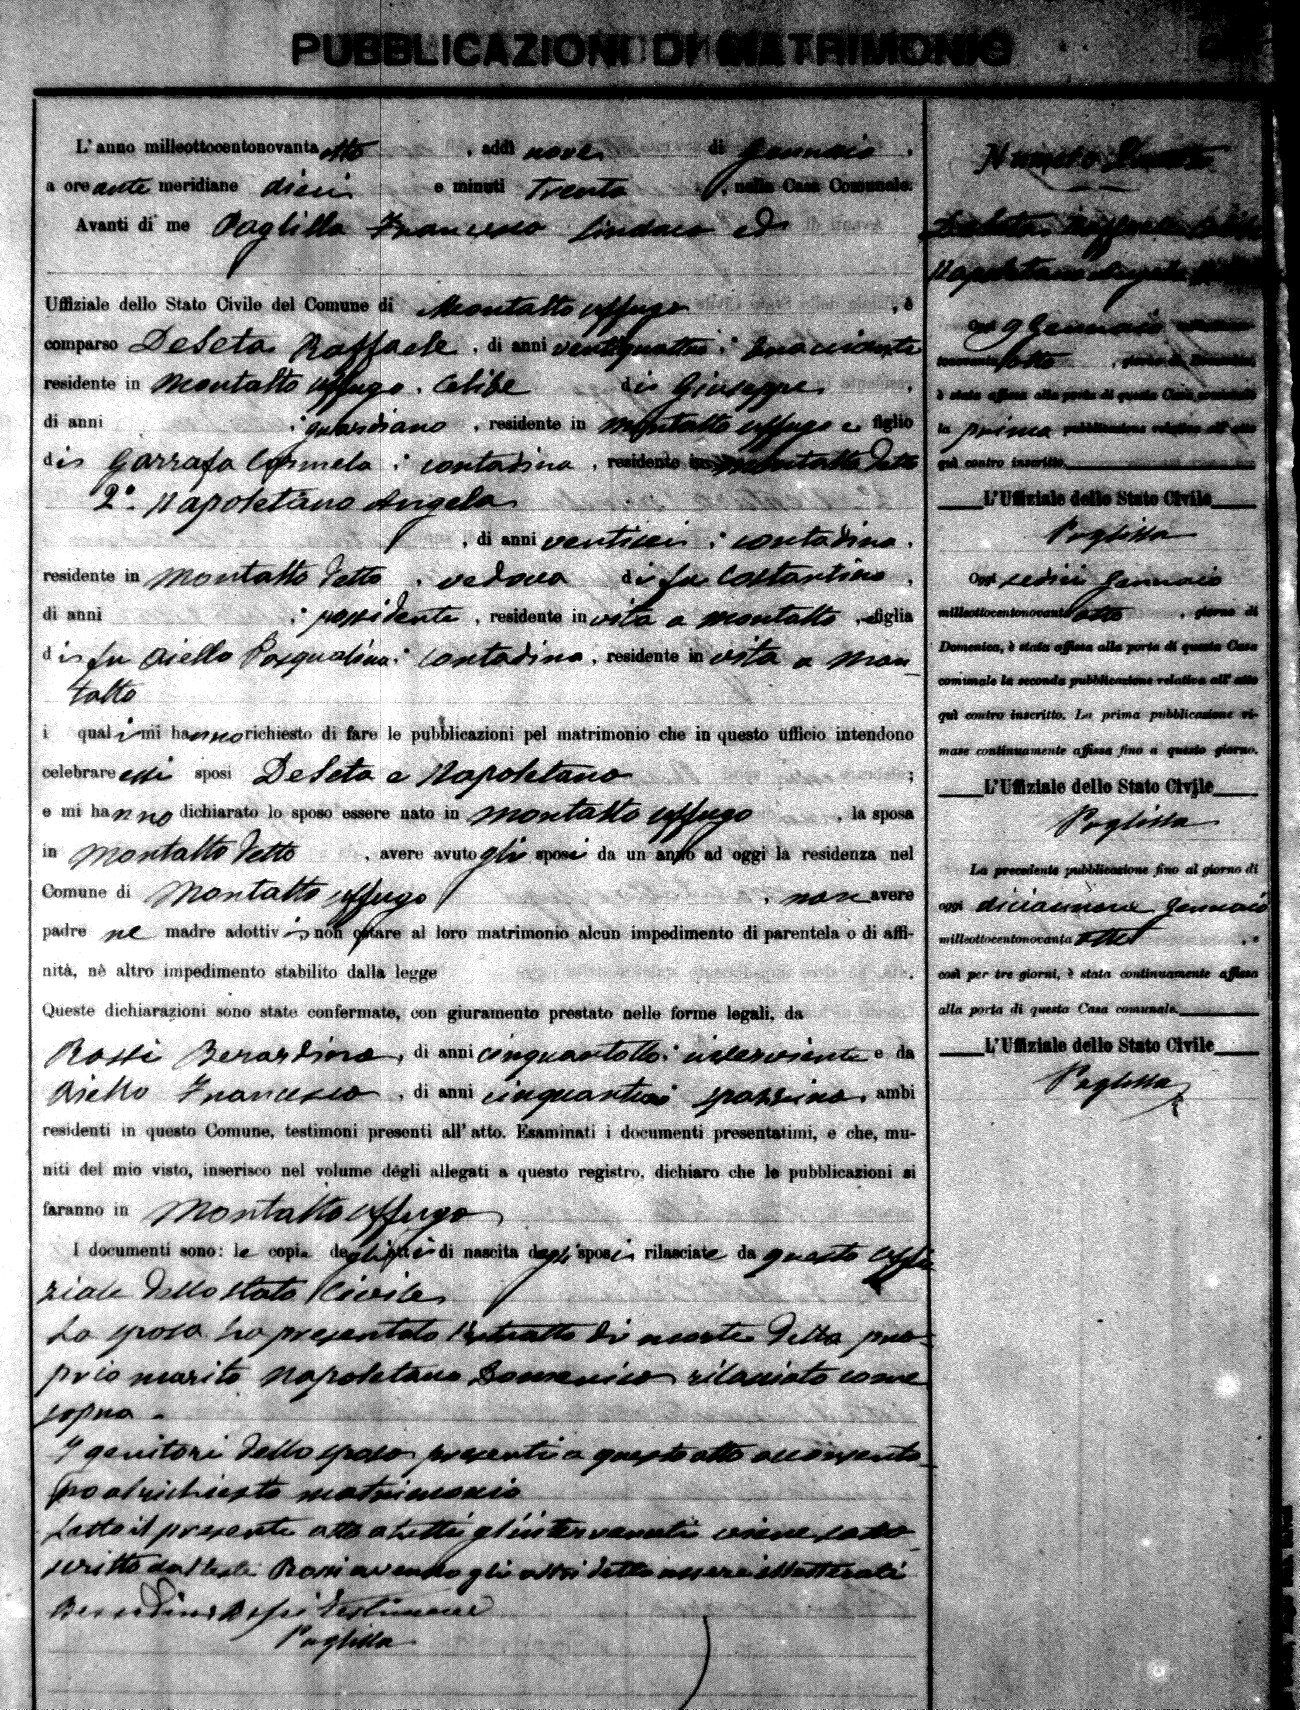 PUBBLICAZIONI DI MATRIMONIO
L'anno milleottocentonovanta otto, addì nove di Gennaio,
a ore ante meridiane dieci e minuti trenta, nella Casa Comunale.
Avanti di me Paglilla Francesco Sindaco ed
Uffiziale dello Stato Civile del Comune di Montalto Uffugo, è
comparso DeSeta Raffaele, di anni ventiquattro,
residente in Montalto Uffugo, Celibe di Giuseppe,
di anni guardiano, residente in Montalto Uffugo e figlio
di Garrafa Carmela, contadina, residente in Montalto detto
2º. Napoletano Angela
, di anni ventisei, contadina,
residente in Montalto detto, vedova di fu Costantino,
di anni possidente, residente in vita a Montalto, figlia
di fu Aiello Pasqualina, contadina, residente in vita a Mon
talto
i quali mi hanno richiesto di fare le pubblicazioni pel matrimonio che in questo ufficio intendono
celebrare essi sposi DeSeta e Napoletano ;
e mi hanno dichiarato lo sposo essere nato in Montalto Uffugo, la sposa
in Montalto detto, avere avuto gli sposi da un anno ad oggi la residenza nel
Comune di Montalto Uffugo, non avere
padre ne madre adottivi, non ostare al loro matrimonio alcun impedimento di parentela o di affi-
nità, nè altro impedimento stabilito dalla legge.
Queste dichiarazioni sono state confermate, con giuramento prestato nelle forme legali, da
Rossi Berardino, di anni cinquantotto, inserviente e da
Aiello Francesco, di anni cinquantasei spazzino, ambi
residenti in questo Comune, testimoni presenti all'atto. Esaminati i documenti presentatimi, e che, mu-
niti del mio visto, inserisco nel volume degli allegati a questo registro, dichiaro che le pubblicazioni si
faranno in Montalto Uffugo
I documenti sono: le copie degli atti di nascita degli sposi rilasciate da questo Uffi
ziale dello Stato Civile
La sposa ha presentato l'estratto di morte della pro-
prio marito Napoletano Domenico rilasciato come
sopra.
I genitori dello sposo presenti a questo atto acconsento
no al richiesto matrimonio
Letto il presente atto a tutti gl'intervenuti viene sotto
scritto dal teste Rossi avendo gli altri detto essere illetterati
Berardino Rossi testimone
Paglilla
Numero
DeSeta Raffaele
Napoletano Angela
Oggi 9 Gennaio milleotto
novanta otto, giorno di Domenica,
è stata affissa alla porta di questa Casa comunale
la prima pubblicazione relativa all'atto
quì contro inscritto.
L'Uffiziale dello Stato Civile
Paglilla
Oggi sedici Gennaio
milleottocentonovanta otto, giorno di
Domenica, è stata affissa alla porta di questa Casa
comunale la seconda pubblicazione relativa all'atto
quì contro inscritto. La prima pubblicazione ri-
mase continuamente affissa fino a questo giorno.
L'Uffiziale dello Stato Civile
Paglilla
La precedente pubblicazione fino al giorno di
oggi diciannove Gennaio
milleottocentonovanta otto, e
così per tre giorni, è stata continuamente affissa
alla porta di questa Casa comunale.
L'Uffiziale dello Stato Civile
Paglilla